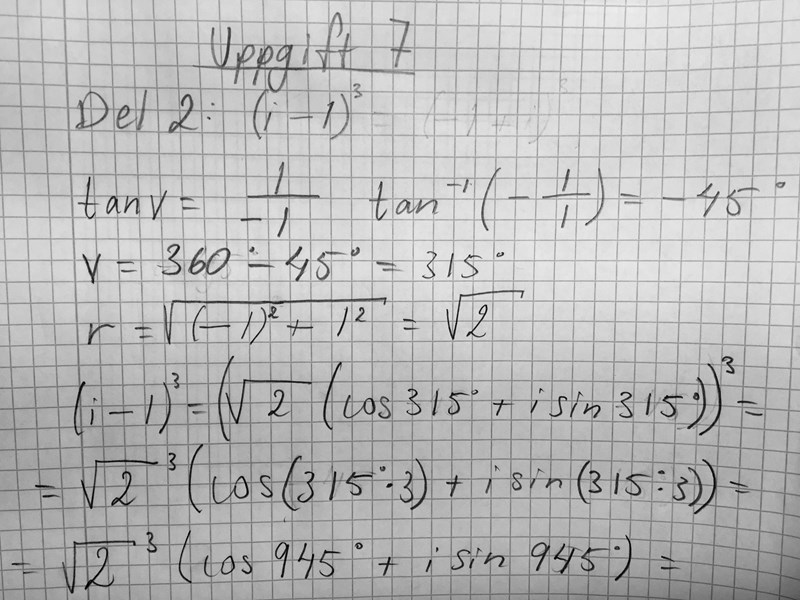 Uppgift 7
Del 2: (i - 1)³ = (-1 + i)³
tan v = 1/-1 tan⁻¹(-1/1) = -45°
v = 360° - 45° = 315°
r = √((-1)² + 1²) = √2
(i - 1)³ = (√2 (cos 315° + i sin 315°))³ =
= √2³ (cos(315°·3) + i sin(315°·3)) =
= √2³ (cos 945° + i sin 945°) =